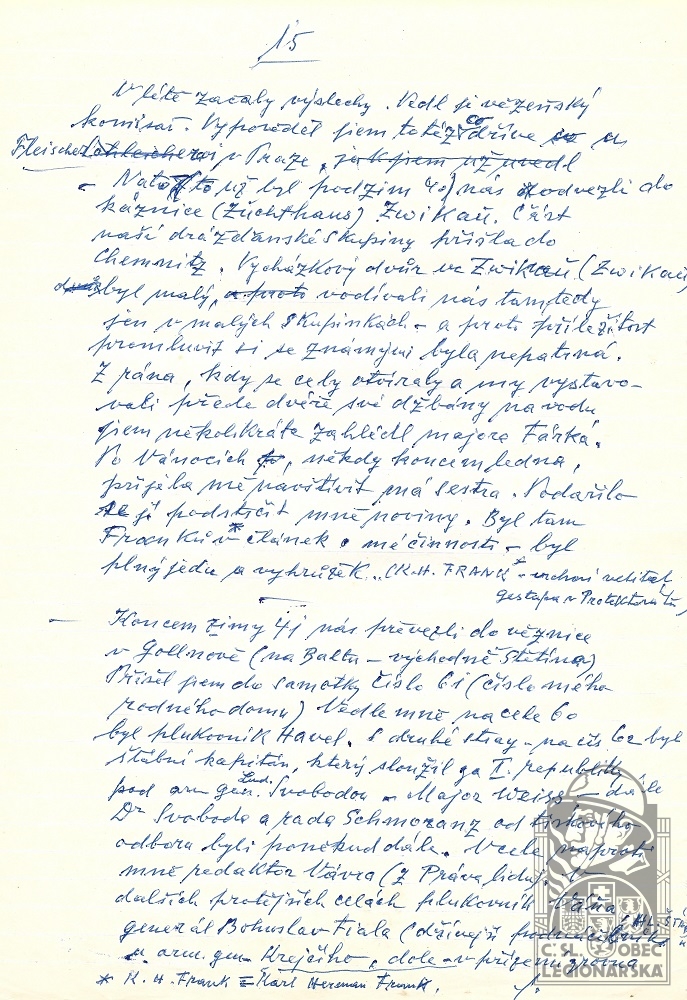 15
V létě začaly výslechy. Vedl je vězeňský
komisař. Vypověděl jsem totéž co dříve u
Fleischera v Praze, jak jsem už uvedl
- Nato (to už byl podzim 40) nás odvezli do
káznice (Zuchthaus) Zwikau. Část
naší drážďanské skupiny přišla do
Chemnitz. Vycházkový dvůr ve Zwikau (Zwikau)
byl malý, a proto vodívali nás tam, tedy
jen v malých skupinkách - a proto příležitost
promluvit si se známými byla nepatrná.
Z rána, kdy se cely otvíraly a my vystavo-
vali přede dvéře své džbány na vodu
jsem několikráte zahlédl majora Fárka.
Po Vánocích, někdy koncem ledna,
přijela mě navštívit má sestra. Podařilo
se jí podstrčit mně noviny. Byl tam
Frankův* článek o mé činnosti - byl
plný jedu a vyhrůžek. (K.H. FRANK* - vrchní velitel
gestapa v Protektorátu)
- Koncem zimy 41 nás převezli do věznice
v Gollnově (na Baltu - východně Štětína)
Přišel jsem do samotky číslo 61 (číslo mého
rodného domu) Vedle mně na cele 60
byl plukovník Havel. S druhé strany - na čís 62 byl
štábní kapitán, který sloužil za I. republiky
pod arm. gen. Lud. Svobodou - Major Weiss - dále
Dr Svoboda a rada Schmoranz od tiskového
odboru byli poněkud dále. V cele naproti
mně redaktor Vávra (z Práva lidu). V
dalších protějších celách plukovník Váňa,
generál Bohuslav Fiala (dřívější podnáčelník HL. ŠT.
u arm. gen. Krejčího, dole - v přízemí zrovna
* K. H. Frank = Karl Herman Frank.
Č.SL. OBEC
LEGIONÁŘSKÁ